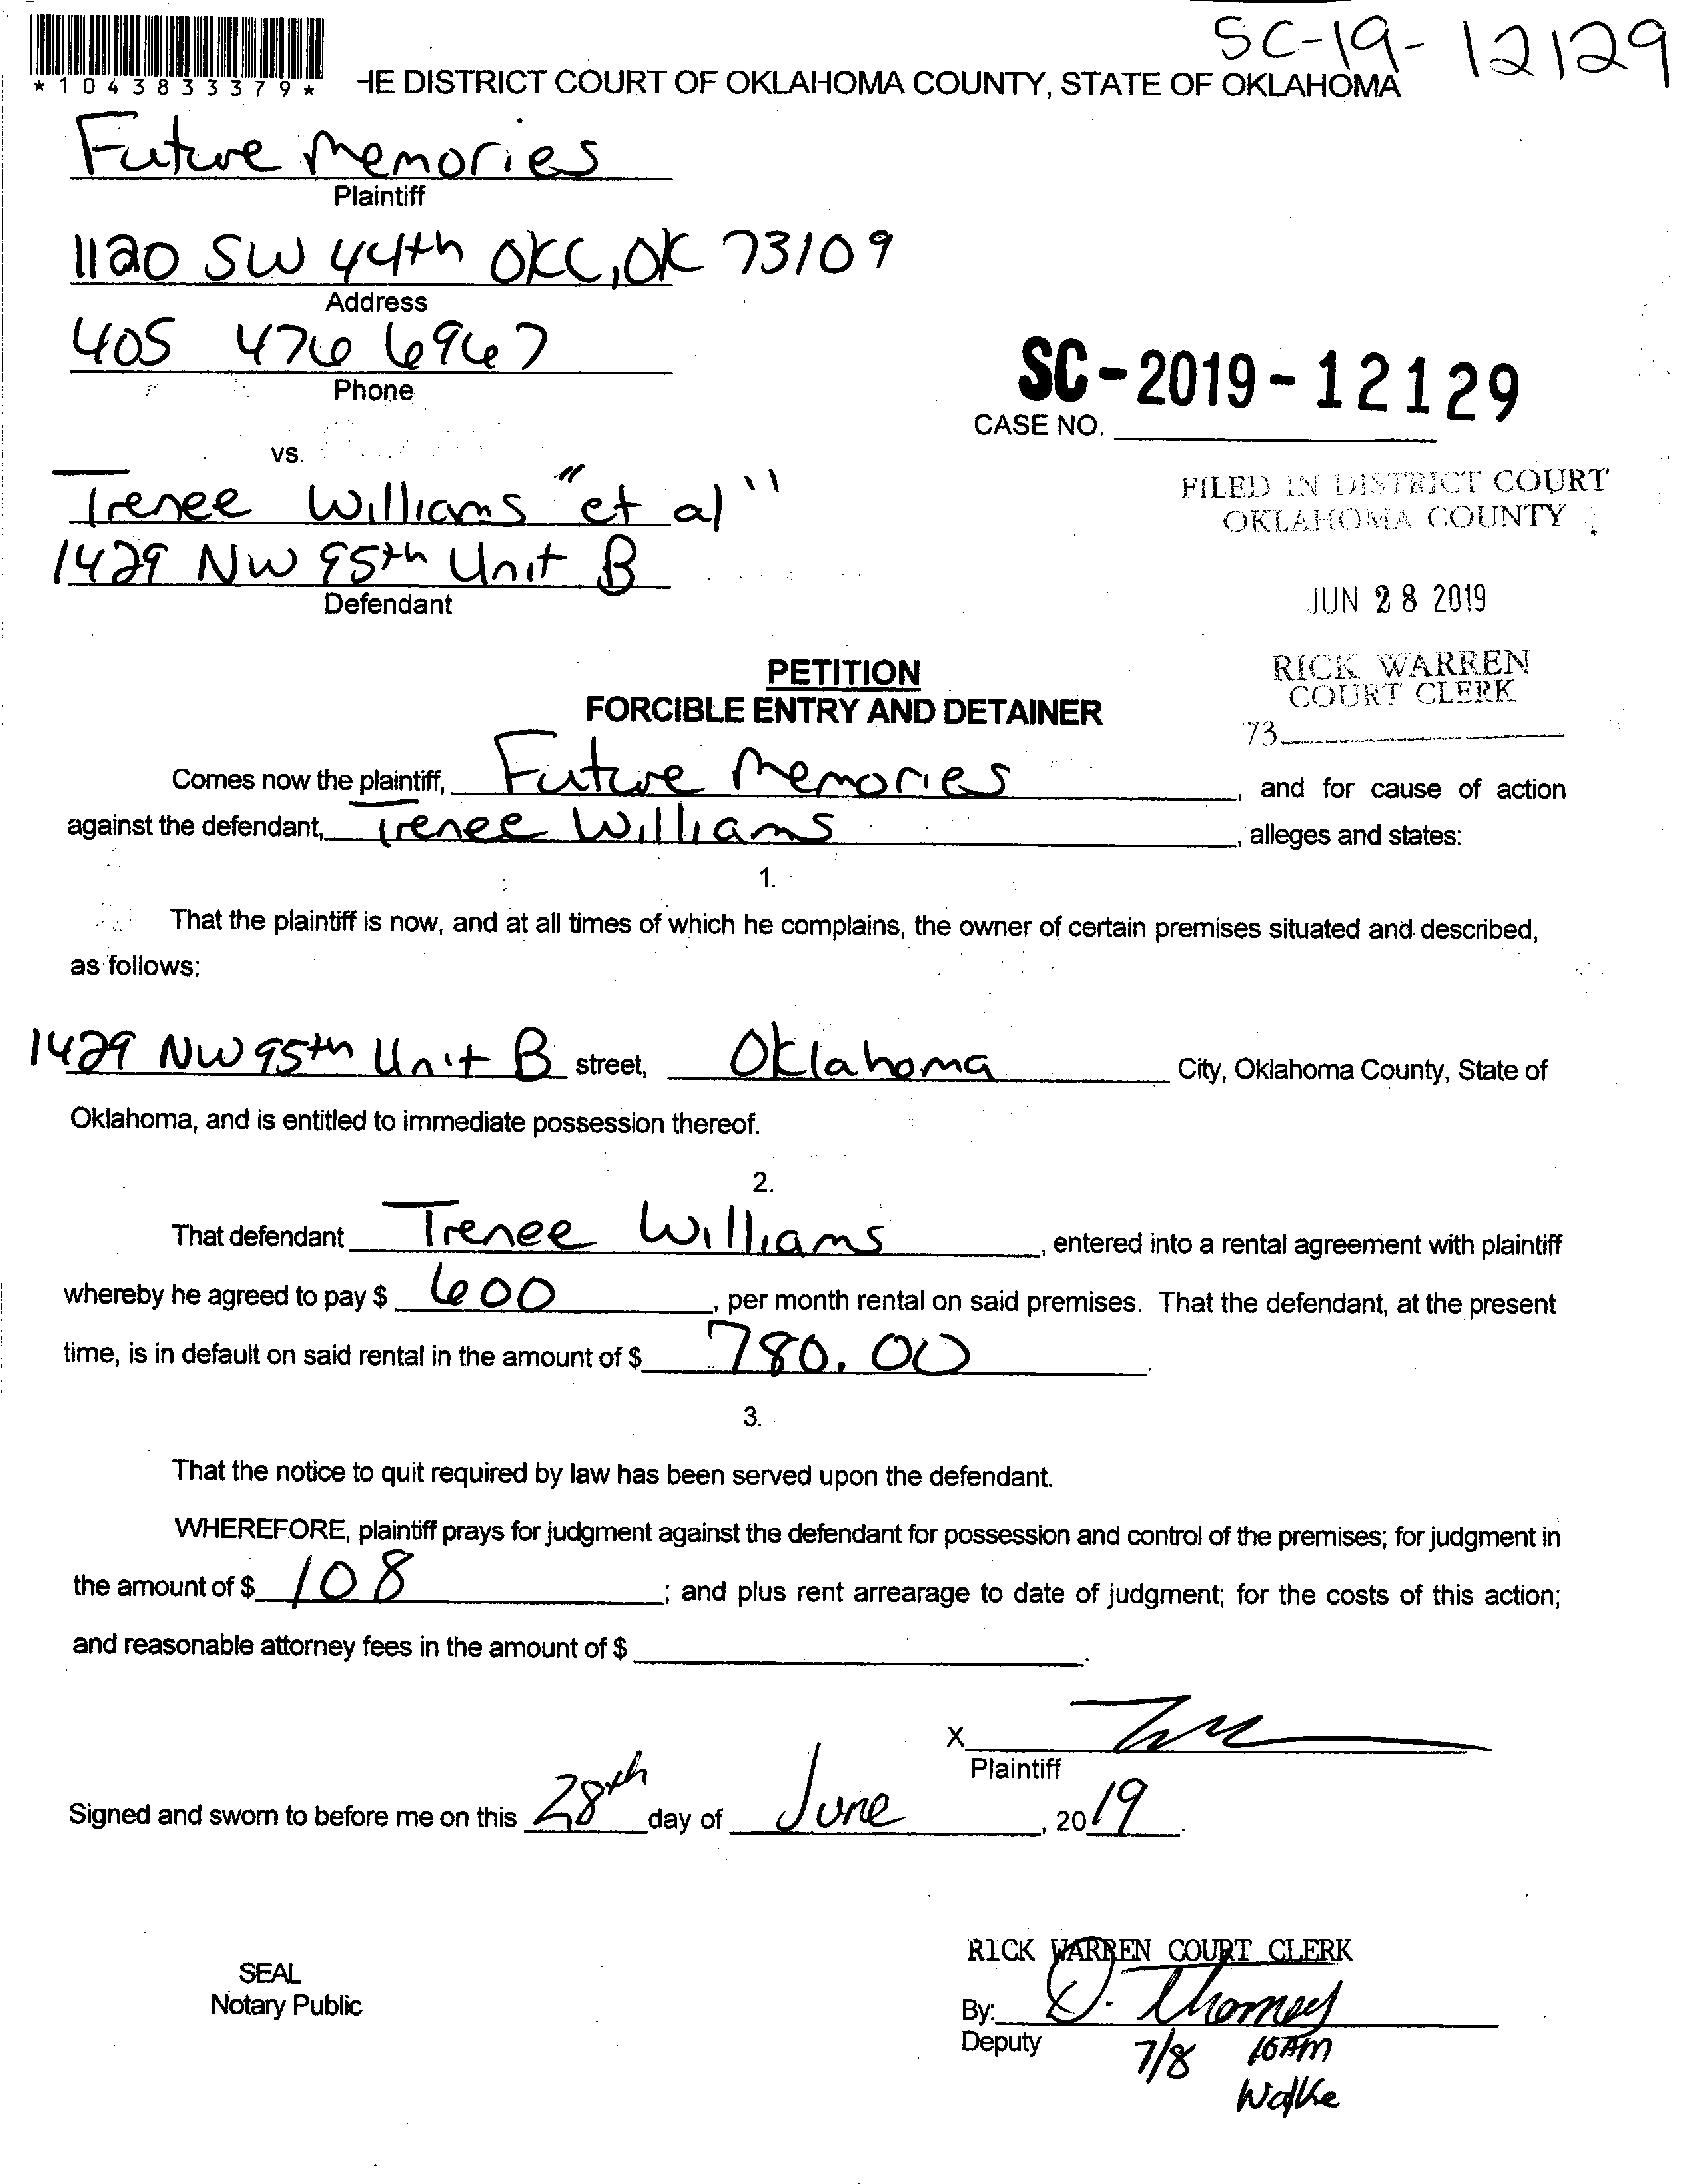 SC-19-12129
*1043833379*
HE DISTRICT COURT OF OKLAHOMA COUNTY, STATE OF OKLAHOMA
Future Memories
Plaintiff
1120 SW 44th OKC, OK 73109
Address
405 476 6967
Phone
SC-2019-12129
CASE NO.
vs.
Trenee Williams "et al"
1429 NW 95th Unit B
Defendant
FILED IN DISTRICT COURT
OKLAHOMA COUNTY
JUN 28 2019
RICK WARREN
COURT CLERK
73
PETITION
FORCIBLE ENTRY AND DETAINER
Comes now the plaintiff, Future Memories, and for cause of action
against the defendant, Trenee Williams, alleges and states:
1.
That the plaintiff is now, and at all times of which he complains, the owner of certain premises situated and described,
as follows:
1429 NW 95th Unit B street, Oklahoma City, Oklahoma County, State of
Oklahoma, and is entitled to immediate possession thereof.
2.
That defendant Trenee Williams, entered into a rental agreement with plaintiff
whereby he agreed to pay $ 600, per month rental on said premises. That the defendant, at the present
time, is in default on said rental in the amount of $ 780.00.
3.
That the notice to quit required by law has been served upon the defendant.
WHEREFORE, plaintiff prays for judgment against the defendant for possession and control of the premises; for judgment in
the amount of $ 108; and plus rent arrearage to date of judgment; for the costs of this action;
and reasonable attorney fees in the amount of $ .
X
Plaintiff
Signed and sworn to before me on this 28th day of June, 2019.
RICK WARREN COURT CLERK
SEAL
Notary Public
By: D.
Deputy
7/8 10AM